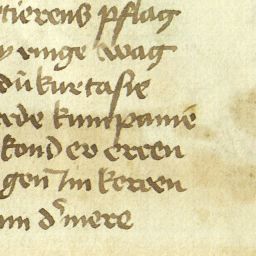 tierens pflag
ringe wag
kurtasie
kumpanie
kond er eren
gen Im keren
dʾ mere